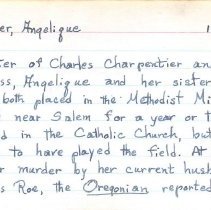 er, Angelique 1
ter of Charles Charpentier an
ss, Angelique and her sister
both placed in the Methodist Mi
near Salem for a year or t
d in the Catholic Church, but
to have played the field. At
r murder by her current husb
s Roe, the Oregonian reported